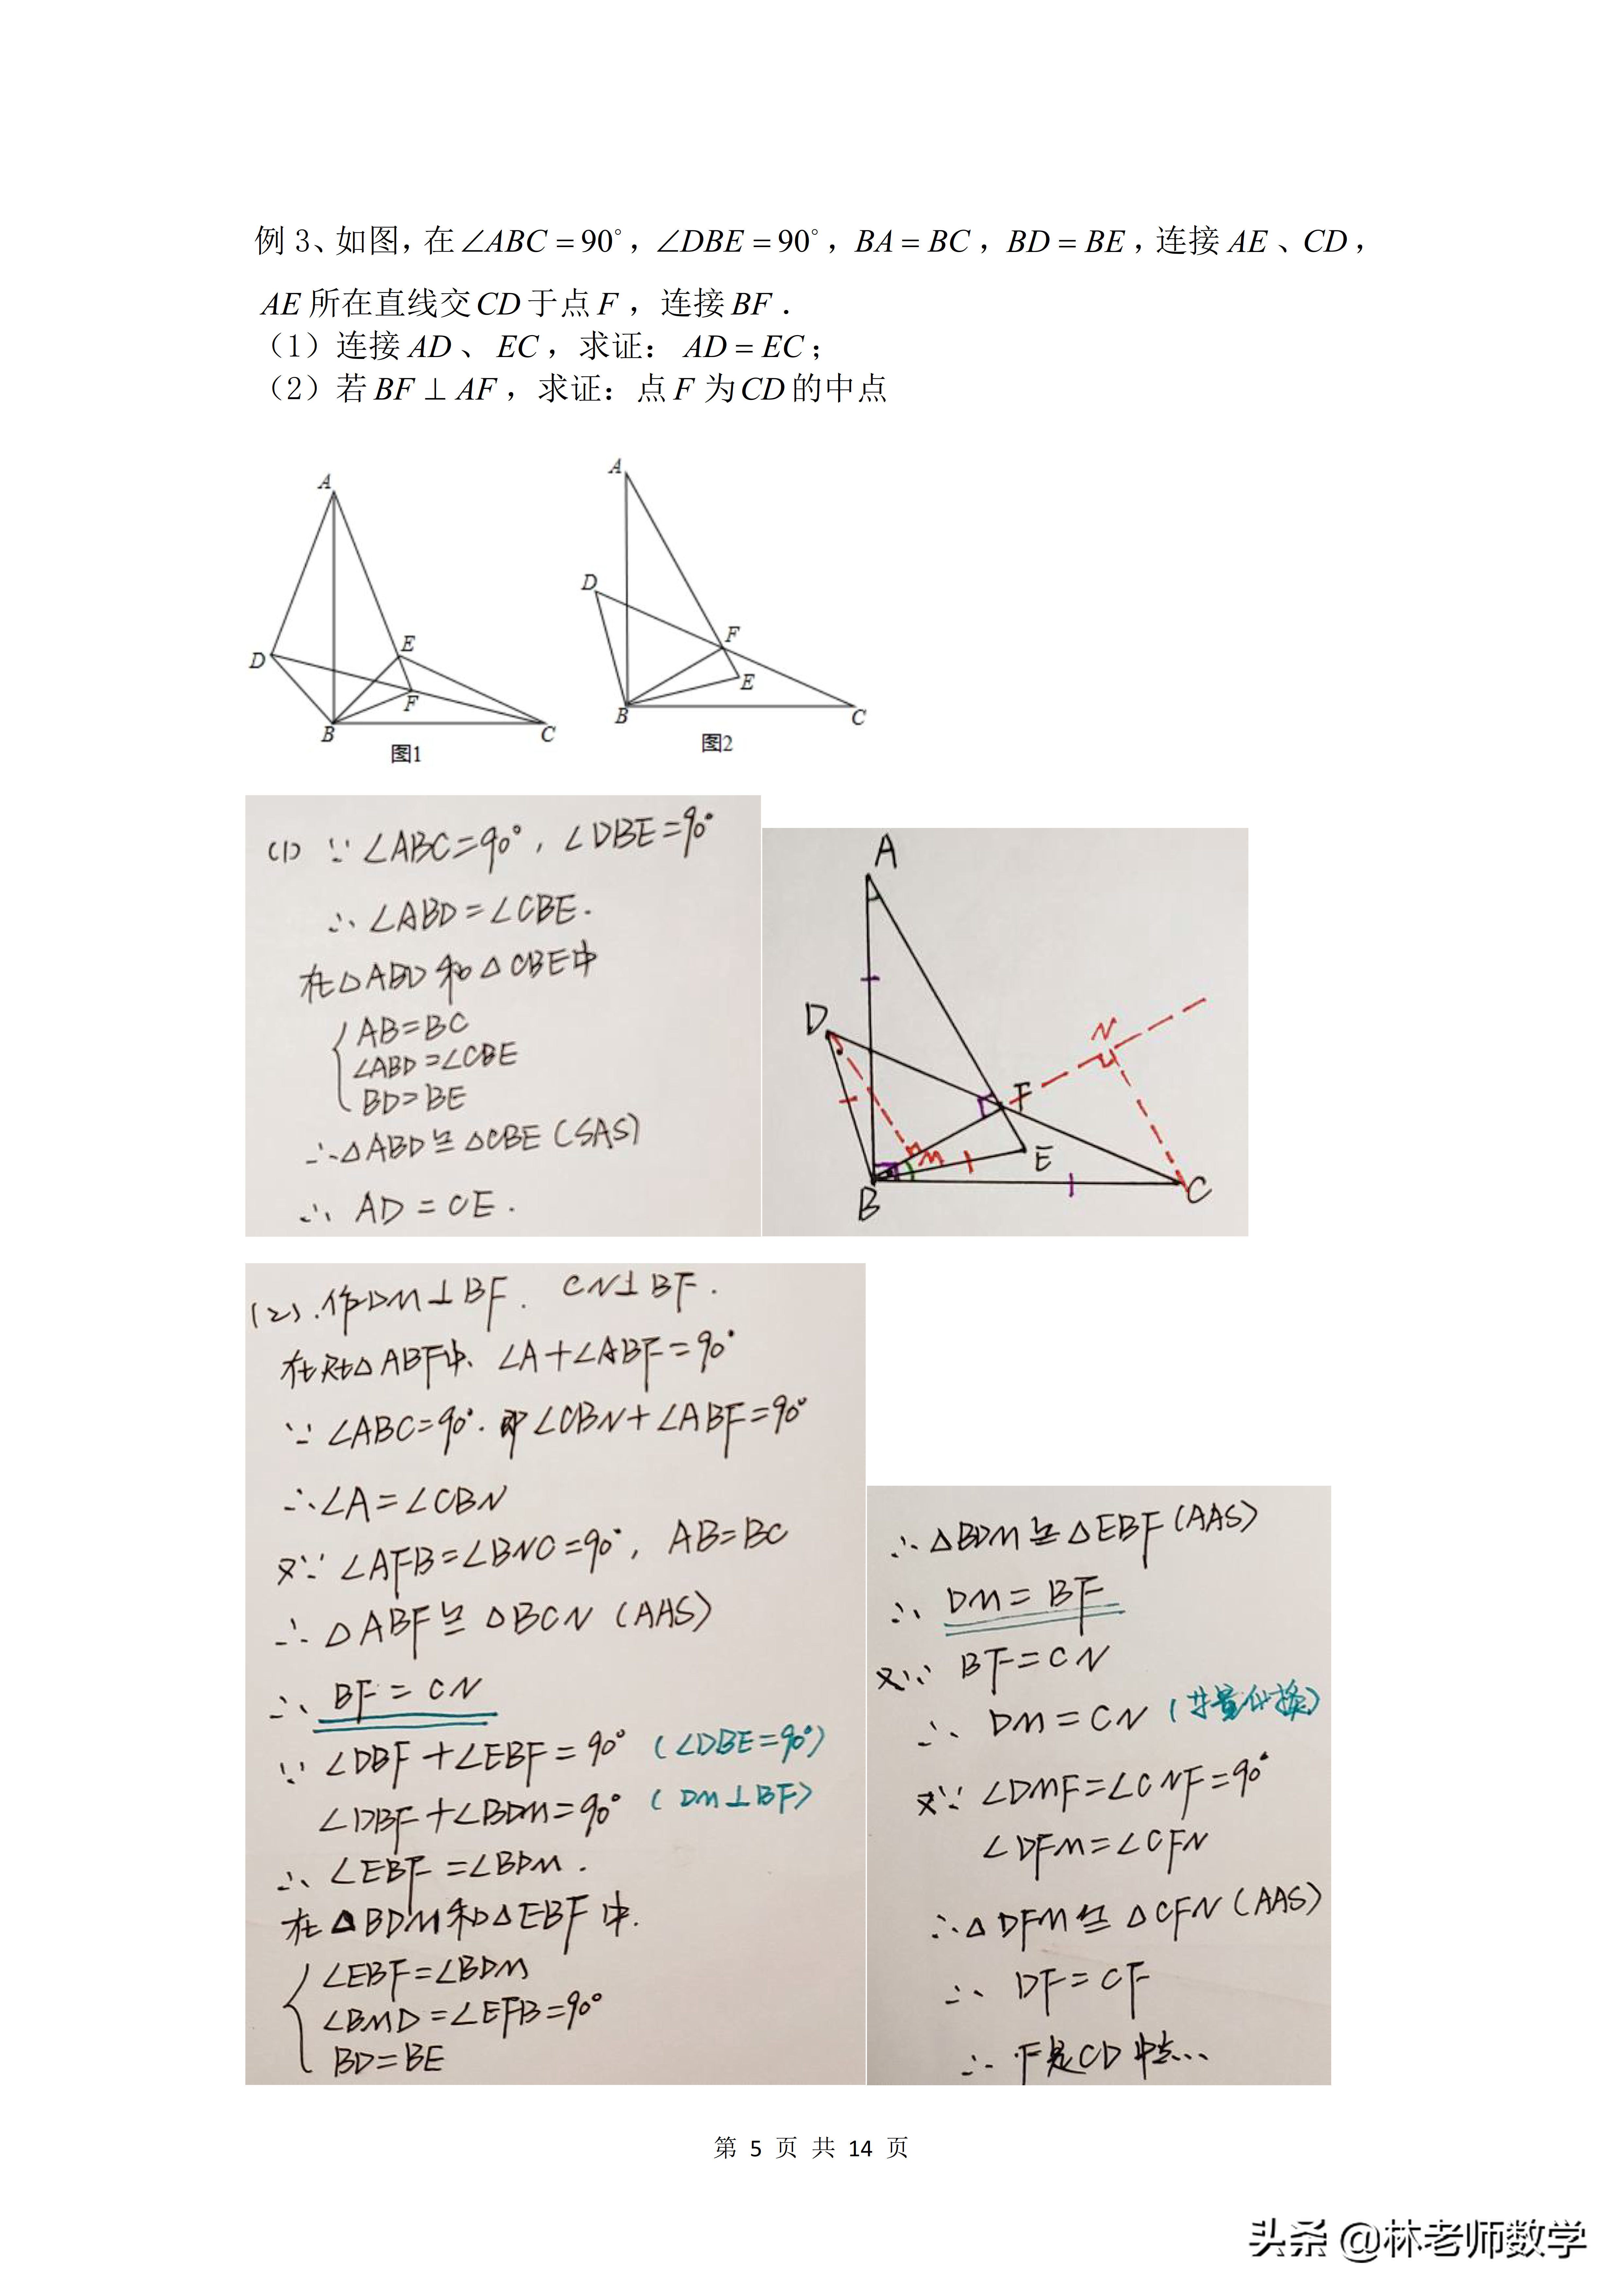 例 3、如图,在∠ABC = 90°,∠DBE = 90°,BA = BC,BD = BE,连接 AE、CD,
AE 所在直线交CD于点 F,连接 BF.
(1)连接 AD、EC,求证:AD = EC;
(2)若 BF ⊥ AF,求证:点 F 为CD的中点
A
D
E
F
B
C
图1
A
D
F
E
B
C
图2
(1) ∵ ∠ABC=90°, ∠DBE=90°
∴ ∠ABD=∠CBE.
在△ABD和△CBE中
AB=BC
∠ABD=∠CBE
BD=BE
∴△ABD≌△CBE(SAS)
∴ AD=CE.
A
D
N
F
M
E
B
C
(2).作DM⊥BF. CN⊥BF.
在Rt△ABF中、∠A+∠ABF=90°
∵ ∠ABC=90°.即∠CBN+∠ABF=90°
∴∠A=∠CBN
又∵ ∠AFB=∠BNC=90°, AB=BC
∴ △ABF≌△BCN(AAS)
∴ BF=CN
∵ ∠DBF+∠EBF=90°(∠DBE=90°)
∠DBF+∠BDM=90°(DM⊥BF)
∴ ∠EBF=∠BDM.
在△BDM和△EBF中.
∠EBF=∠BDM
∠BMD=∠EFB=90°
BD=BE
∴△BDM≌△EBF(AAS)
∴ DM=BF
又∵ BF=CN
∴ DM=CN(等量代换)
又∵ ∠DMF=∠CNF=90°
∠DFM=∠CFN
∴△DFM≌△CFN(AAS)
∴ DF=CF
∴ F是CD中点..
第 5 页 共 14 页
头条 @林老师数学